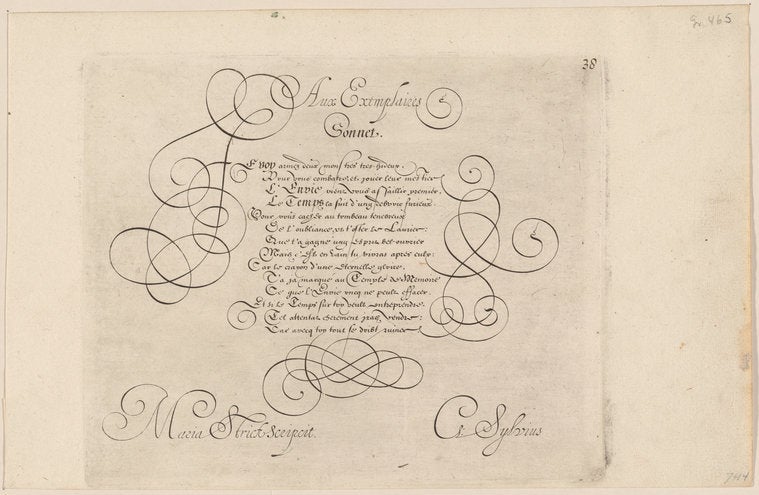 gr. 465
38
Aux Exemplaires
Sonnet.
IE voy armez deux monstres tres-hideux,
Pour vous combatre, et jouer leur mestier
L'Envie vient vous assaillir premier,
Le Temps la suit d'ung febvre furieux.
Pour vous cacher au tombeau tenebreux
De l'oubliance, et t'oster le Laurier:
Que t'a gagné ung esprit bel ouvrier
Mais c'est en vain tu vivras après eulx:
Car le crayon d'une eternelle gloire,
T'a ja marqué au Temple de Memoire
Ce que l'Envie oncq ne peult effacer.
Et si le Temps sur toy veult entreprendre,
Tel attentat cherement vendre:
Car avecq toy tout se doibt ruiner
Maria Strick scripcit.
Sylvius
744